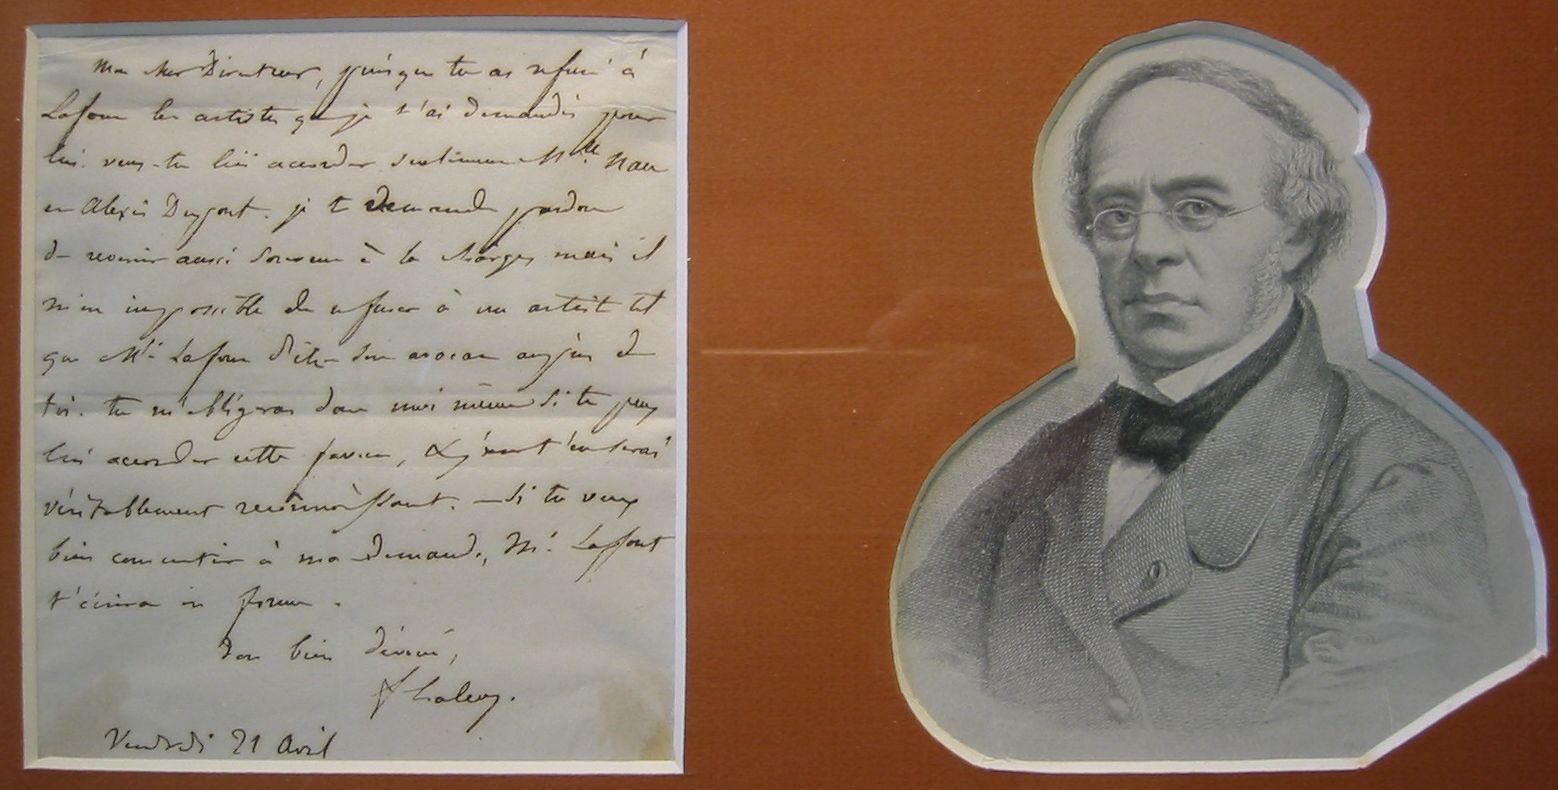 Mon cher Directeur, puisque tu as refusé à
Lafont les artistes que je t'ai demandés pour
lui. veux-tu lui accorder seulement Mlle Nau
en Alexis Dupont. je te demande pardon
de revenir aussi souvent à la charge, mais il
m'est impossible de refuser à un artiste tel
que Mr. Lafont d'être son avocat auprès de
toi. tu m'obligeras donc moi même si tu peux
lui accorder cette faveur, & je t'en serai
véritablement reconnoissant. – Si tu veux
bien consentir à ma demande, Mr. Laffont
t'écrira en forme.
Ton bien dévoué,
F Halevy.
Vendredi 21 Avril